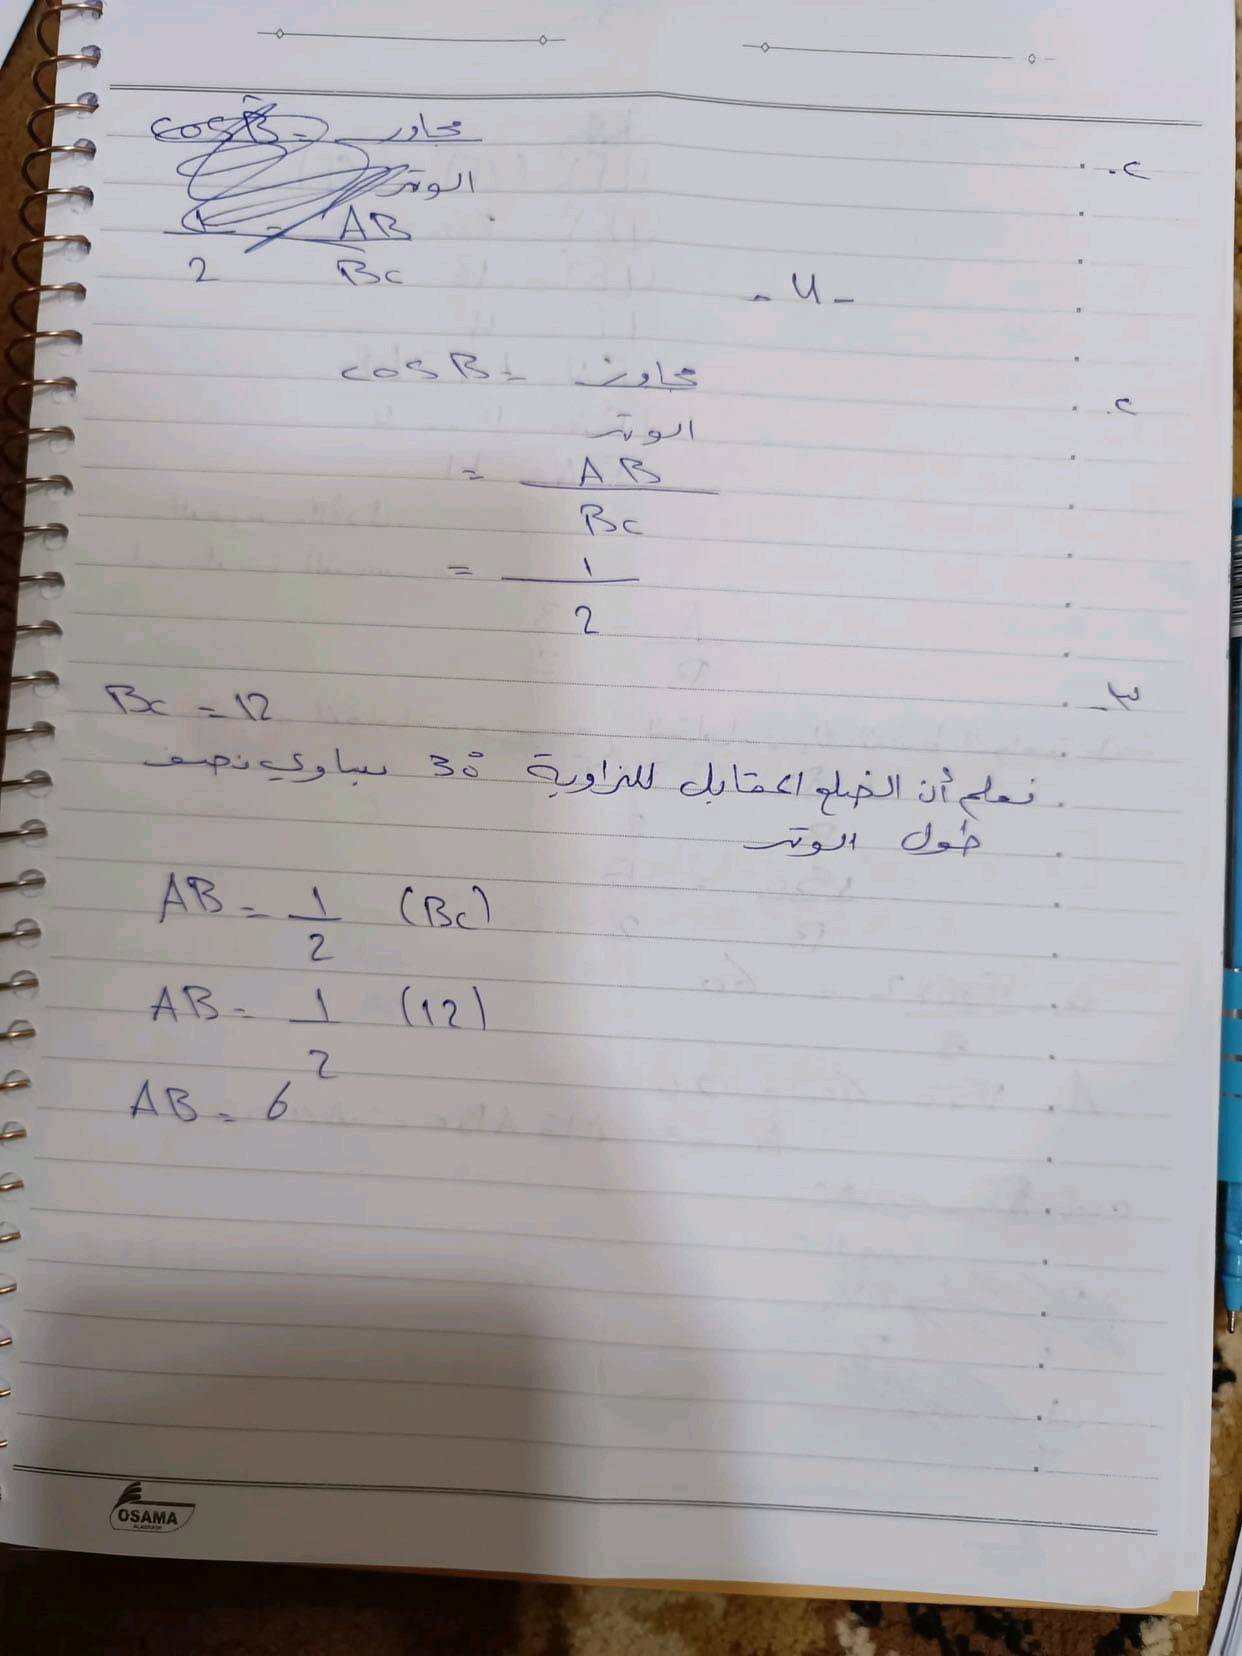 cos B̂ = مجاور
الوتر
1 = AB
2 BC
٢.
- 4 -
٢.
cos B = مجاور
الوتر
= AB
BC
= 1
2
٣-
BC = 12
نعلم أن الضلع المقابل للزاوية 30° يساوي نصف
طول الوتر
AB = 1 (BC)
2
AB = 1 (12)
2
AB = 6
OSAMA